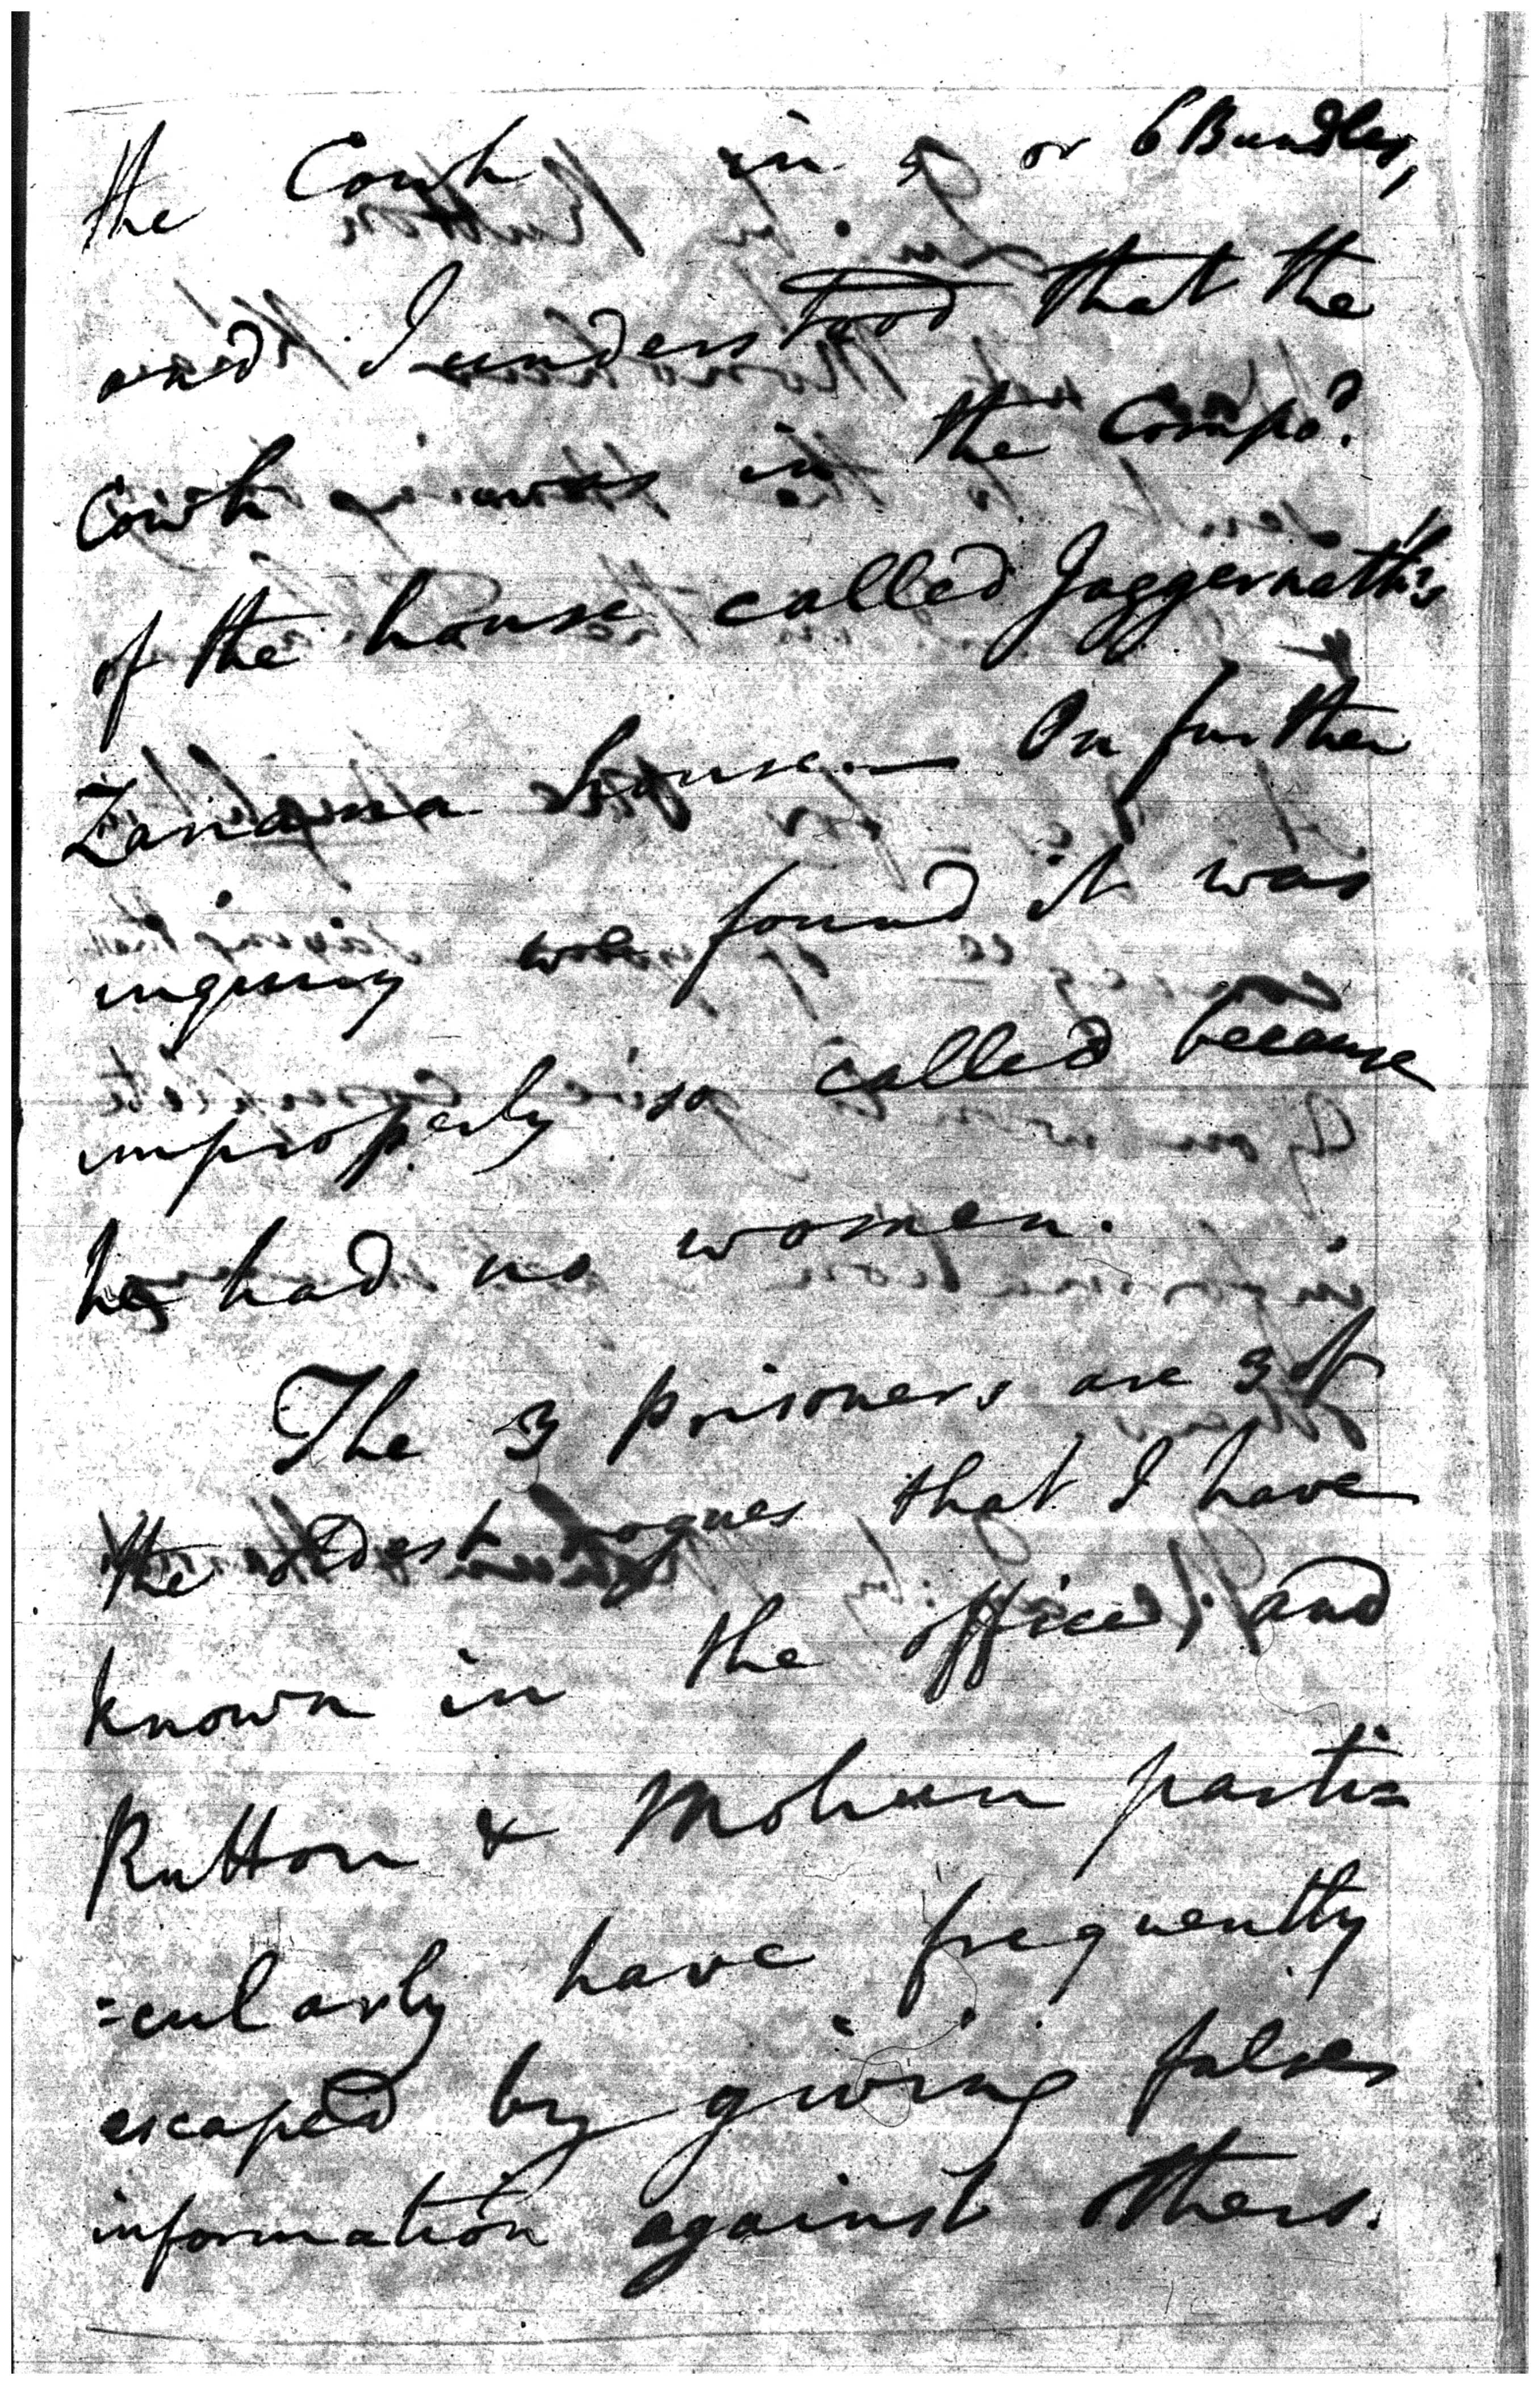 the Cowh in 5 or 6 Bundles,
and I understood that the
Cowh was in the Compd.
of the house called Jaggernath's
Zanana house.— On further
inquiry we found it was
improperly so called because
he had no women.
The 3 prisoners are 3 of
the oldest rogues that I have
known in the office, and
Rutton & Mohun parti=
=cularly have frequently
escaped by giving false
information against others.